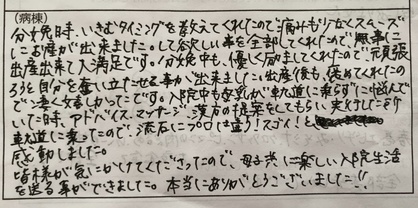 (病棟)
分娩時、いきむタイミングを教えてくれたので痛みも少なくスムーズ
にお産が出来ました。して欲しい事を全部してくれたので、無事に
出産出来て大満足です。分娩中も、優しく励ましてくれたので、元頑張
ろうと自分を奮い立たせる事が出来ました。出産後も、褒めてくれたの
で凄く嬉しかったです。入院中も母乳が軌道に乗らずに悩んで
いた時、アドバイス、マッサージ、漢方の提案をしてもらい実行したら
軌道に乗ったので、流石にプロは違う!スゴイ!と
感動しました。
皆様が気にかけてくださったので、母子共に楽しい入院生活
を送る事ができました。本当にありがとうございました!!